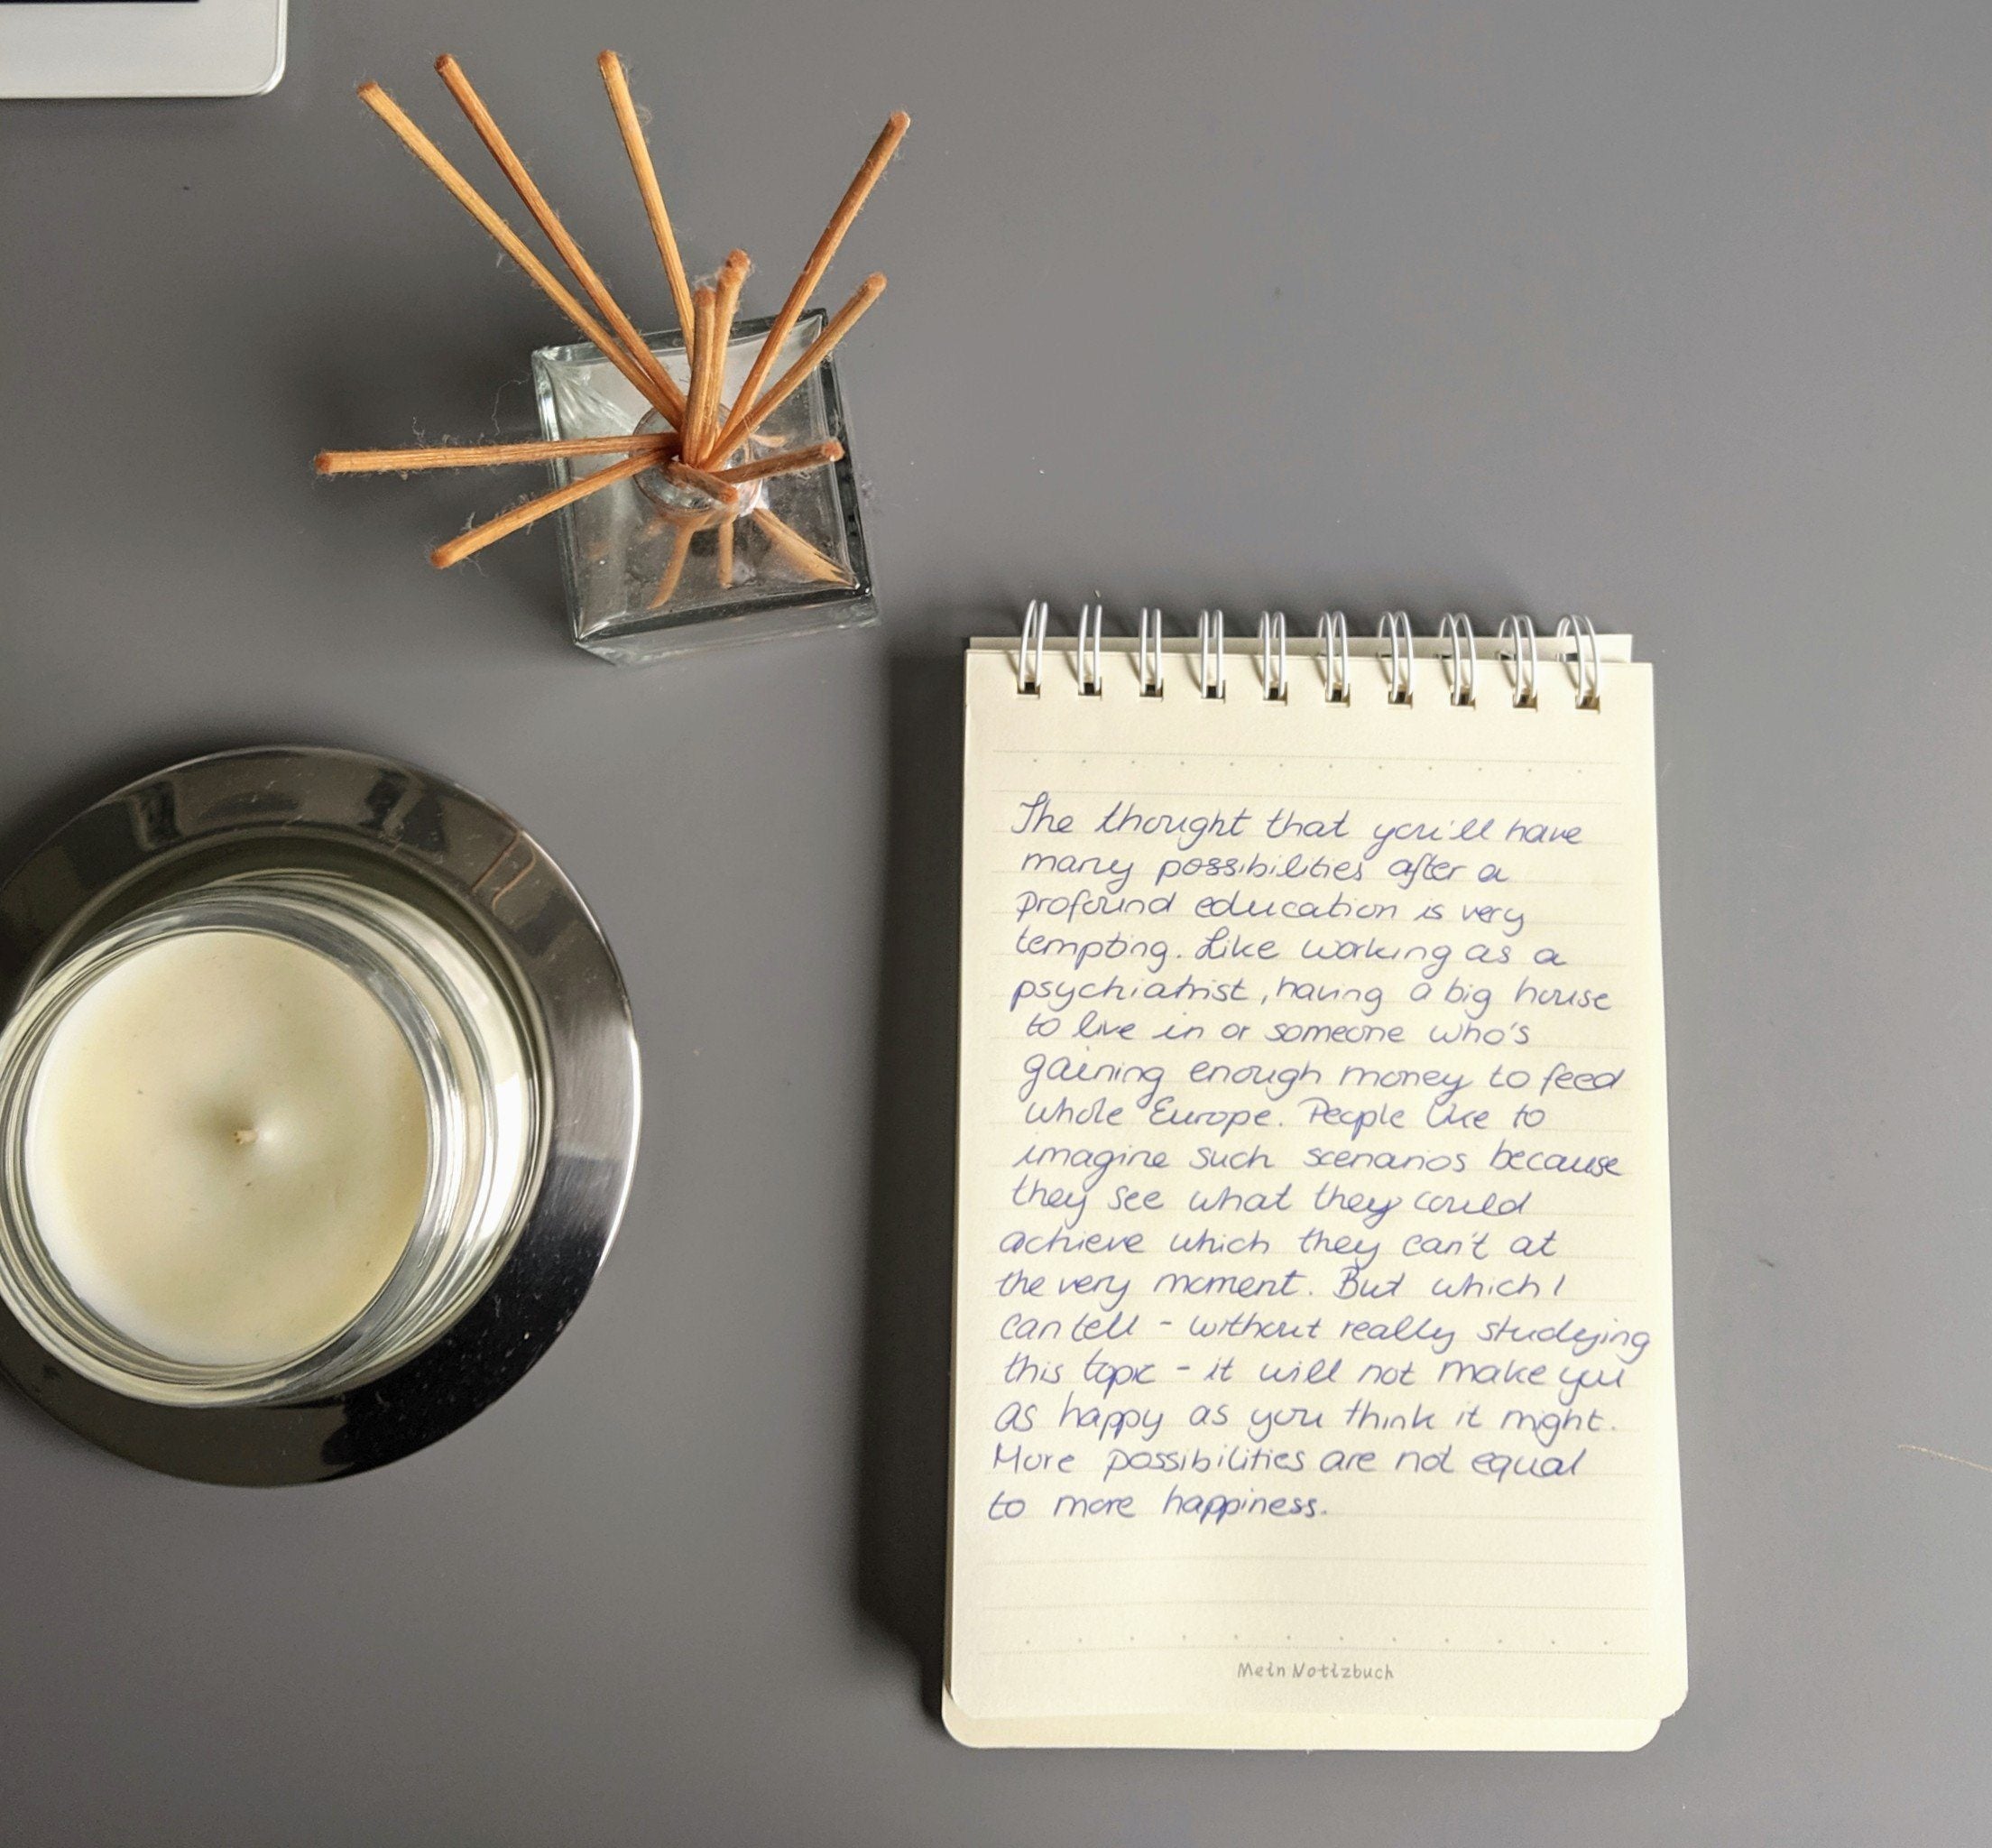 The thought that you'll have
many possibilities after a
profound education is very
tempting. Like working as a
psychiatrist, having a big house
to live in or someone who's
gaining enough money to feed
whole Europe. People like to
imagine such scenarios because
they see what they could
achieve which they can't at
the very moment. But which I
can tell - without really studying
this topic - it will not make you
as happy as you think it might.
More possibilities are not equal
to more happiness.
Mein Notizbuch